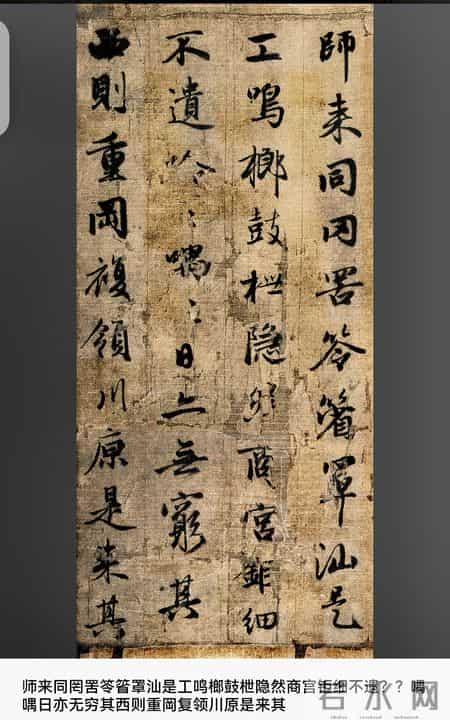 師来同罔罟笭箵罩汕是
工鳴榔鼓枻隐然商宫鉅細
不遺唫〻喁〻日亦無窮其
西則重岡複領川原是来其
师来同罔罟笭箵罩汕是工鸣榔鼓枻隐然商宫钜细不遗？？喁
喁日亦无穷其西则重冈复领川原是来其